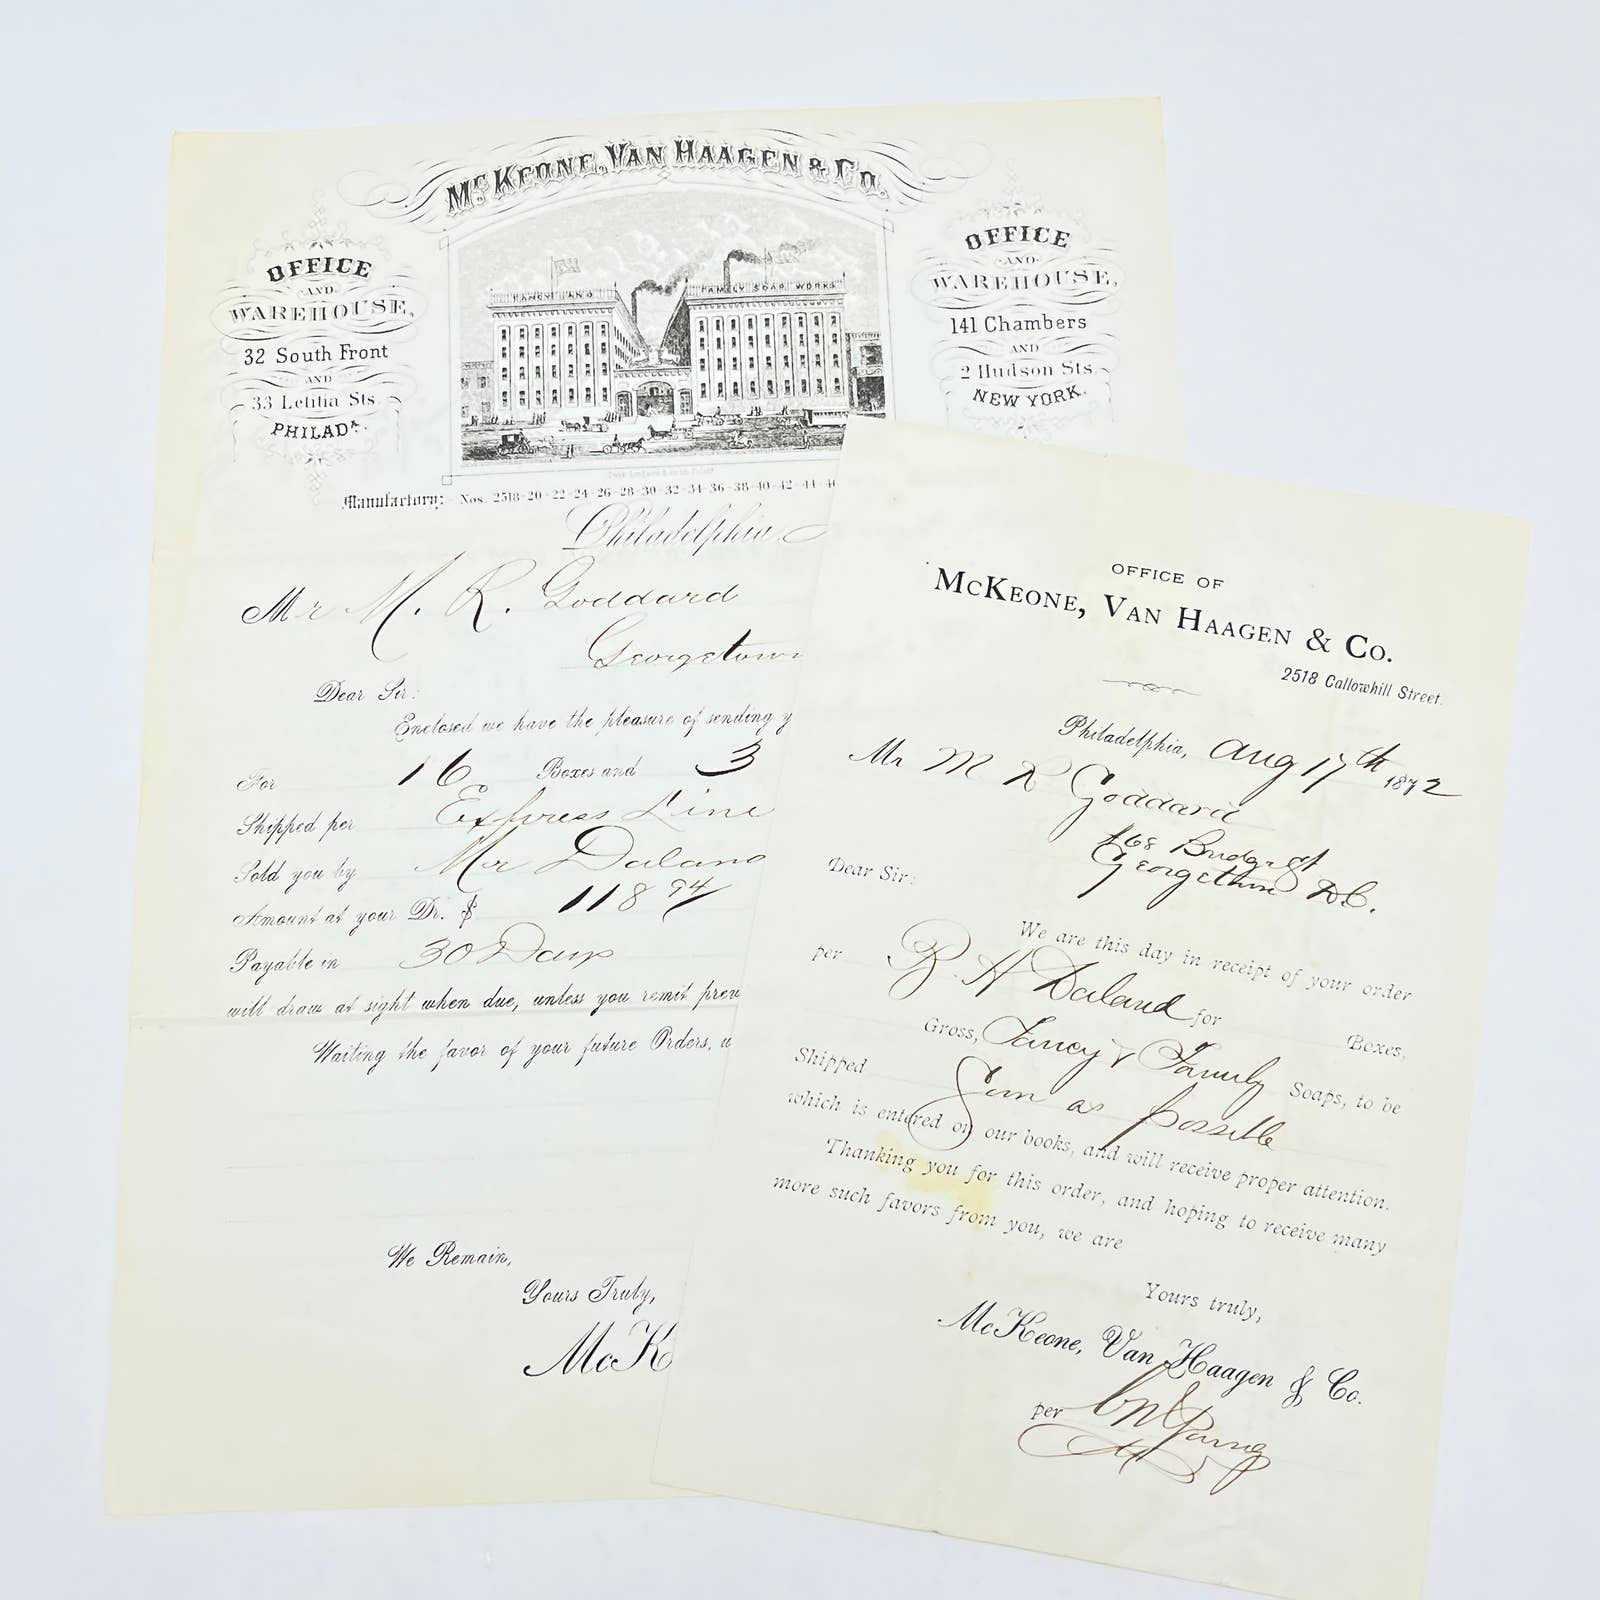 McKeone, Van Haagen & Co.
OFFICE
AND
WAREHOUSE,
32 South Front
AND
33 Letitia Sts.
PHILADA.
FANCY AND
FAMILY SOAP WORKS
OFFICE
AND
WAREHOUSE,
141 Chambers
AND
2 Hudson Sts.
NEW YORK.
Manufactory: Nos. 2518-20-22-24-26-28-30-32-34-36-38-40-42-44-4
Philadelphia,
Mr M. R. Goddard
Georgetown
Dear Sir:
Enclosed we have the pleasure of sending y
For 16 Boxes and 3
Shipped per Express Line
Sold you by Mr Daland
Amount at your Dr. $ 118 94/
Payable in 30 Days
will draw at sight when due, unless you remit prev
Waiting the favor of your future Orders,
We Remain,
Yours Truly,
McK
OFFICE OF
McKeone, Van Haagen & Co.
2518 Callowhill Street.
Philadelphia, Aug 17th 1872
Mr M R Goddard
168 Bridge St
Georgetown D.C.
Dear Sir:
We are this day in receipt of your order
per B. H Daland for Boxes,
Gross, Fancy & Family Soaps, to be
Shipped Soon as possible
which is entered on our books, and will receive proper attention.
Thanking you for this order, and hoping to receive many
more such favors from you, we are
Yours truly,
McKeone, Van Haagen & Co.
per